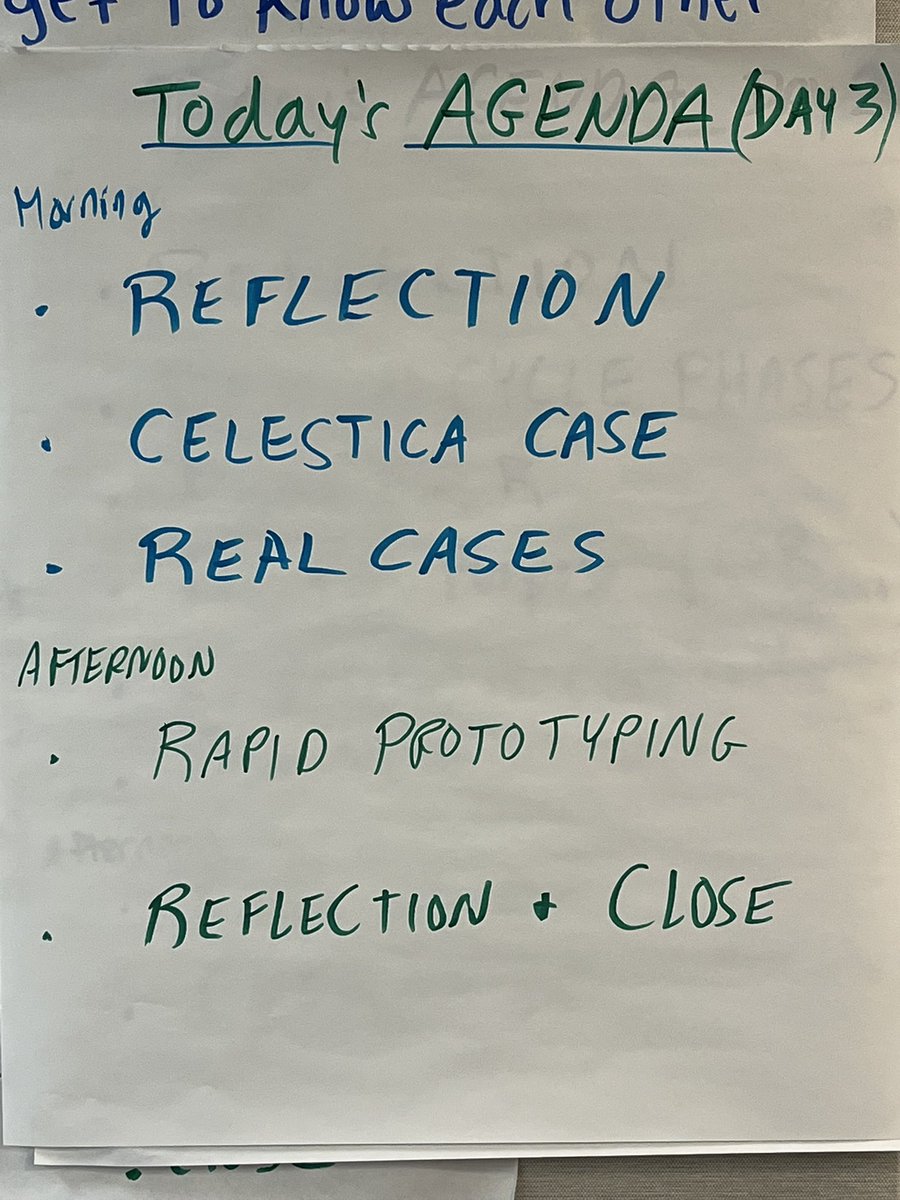 get to know each other
Today's AGENDA (DAY 3)
Morning
• REFLECTION
• CELESTICA CASE
• REAL CASES
AFTERNOON
• RAPID PROTOTYPING
• REFLECTION + CLOSE